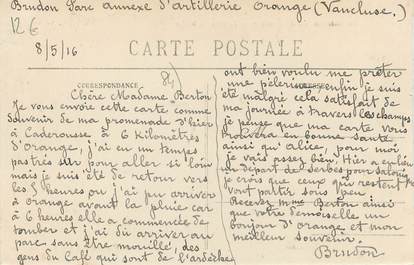 Brudon Parc annexe d'artillerie Orange (Vaucluse.)
12€
8/5/16
CARTE POSTALE
CORRESPONDANCE
84
Chère Madame Berton
Je vous envoie cette carte comme
souvenir de ma promenade d'hier
à Caderousse à 6 Kilomètres
d'Orange, j'ai eu un temps
pas très sur pour aller si loin
mais je suis été de retour vers
les 5 heures ou j'ai pu arriver
à Orange avant la pluie car
à 6 heures elle a commencée de
tomber et j'ai dû arriver au
parc sans être mouillé, des
gens du Café qui sont de l'ardèche
ont bien voulu me prêter
une pèlerine, enfin je suis
été malgré cela satisfait de
ma journée à travers les champs
je pense que ma carte vous
trouvera en bonne santé
ainsi qu'Alice, pour moi
je vais assez bien. Hier a eu lieu
un départ de Serbes pour Salonique
je crois que ceux qui restent
vont partir sous peu
Recevez Mme Berton ainsi
que votre demoiselle un
bonjour d'Orange et mon
meilleur souvenir.
Brudon